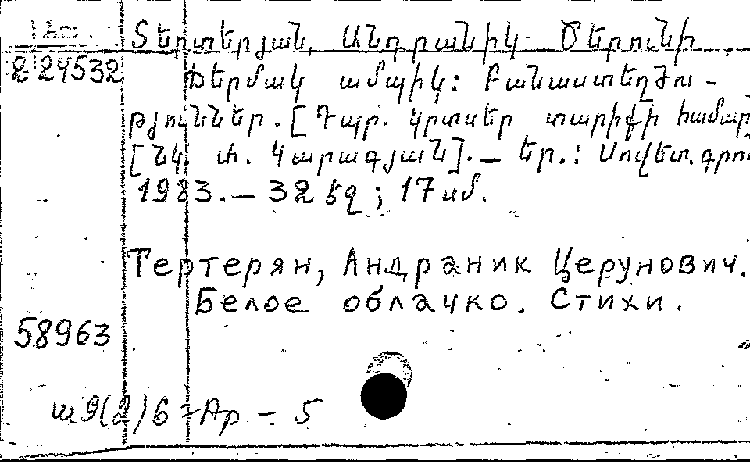 Տերտերյան, Անդրանիկ Ծերունի
224532
Ճերմակ ամպիկ: Բանաստեղծու-
թյուններ. [Դպր. կրտսեր տարիքի համար
[նկ. Վ. Կարագյան]. — Եր.: Սովետ. գրող
1983. — 32 էջ ; 17 սմ.
Тертерян, Андраник Церунович.
Белое облачко. Стихи.
58963
ա9(2)6 Ар - 5